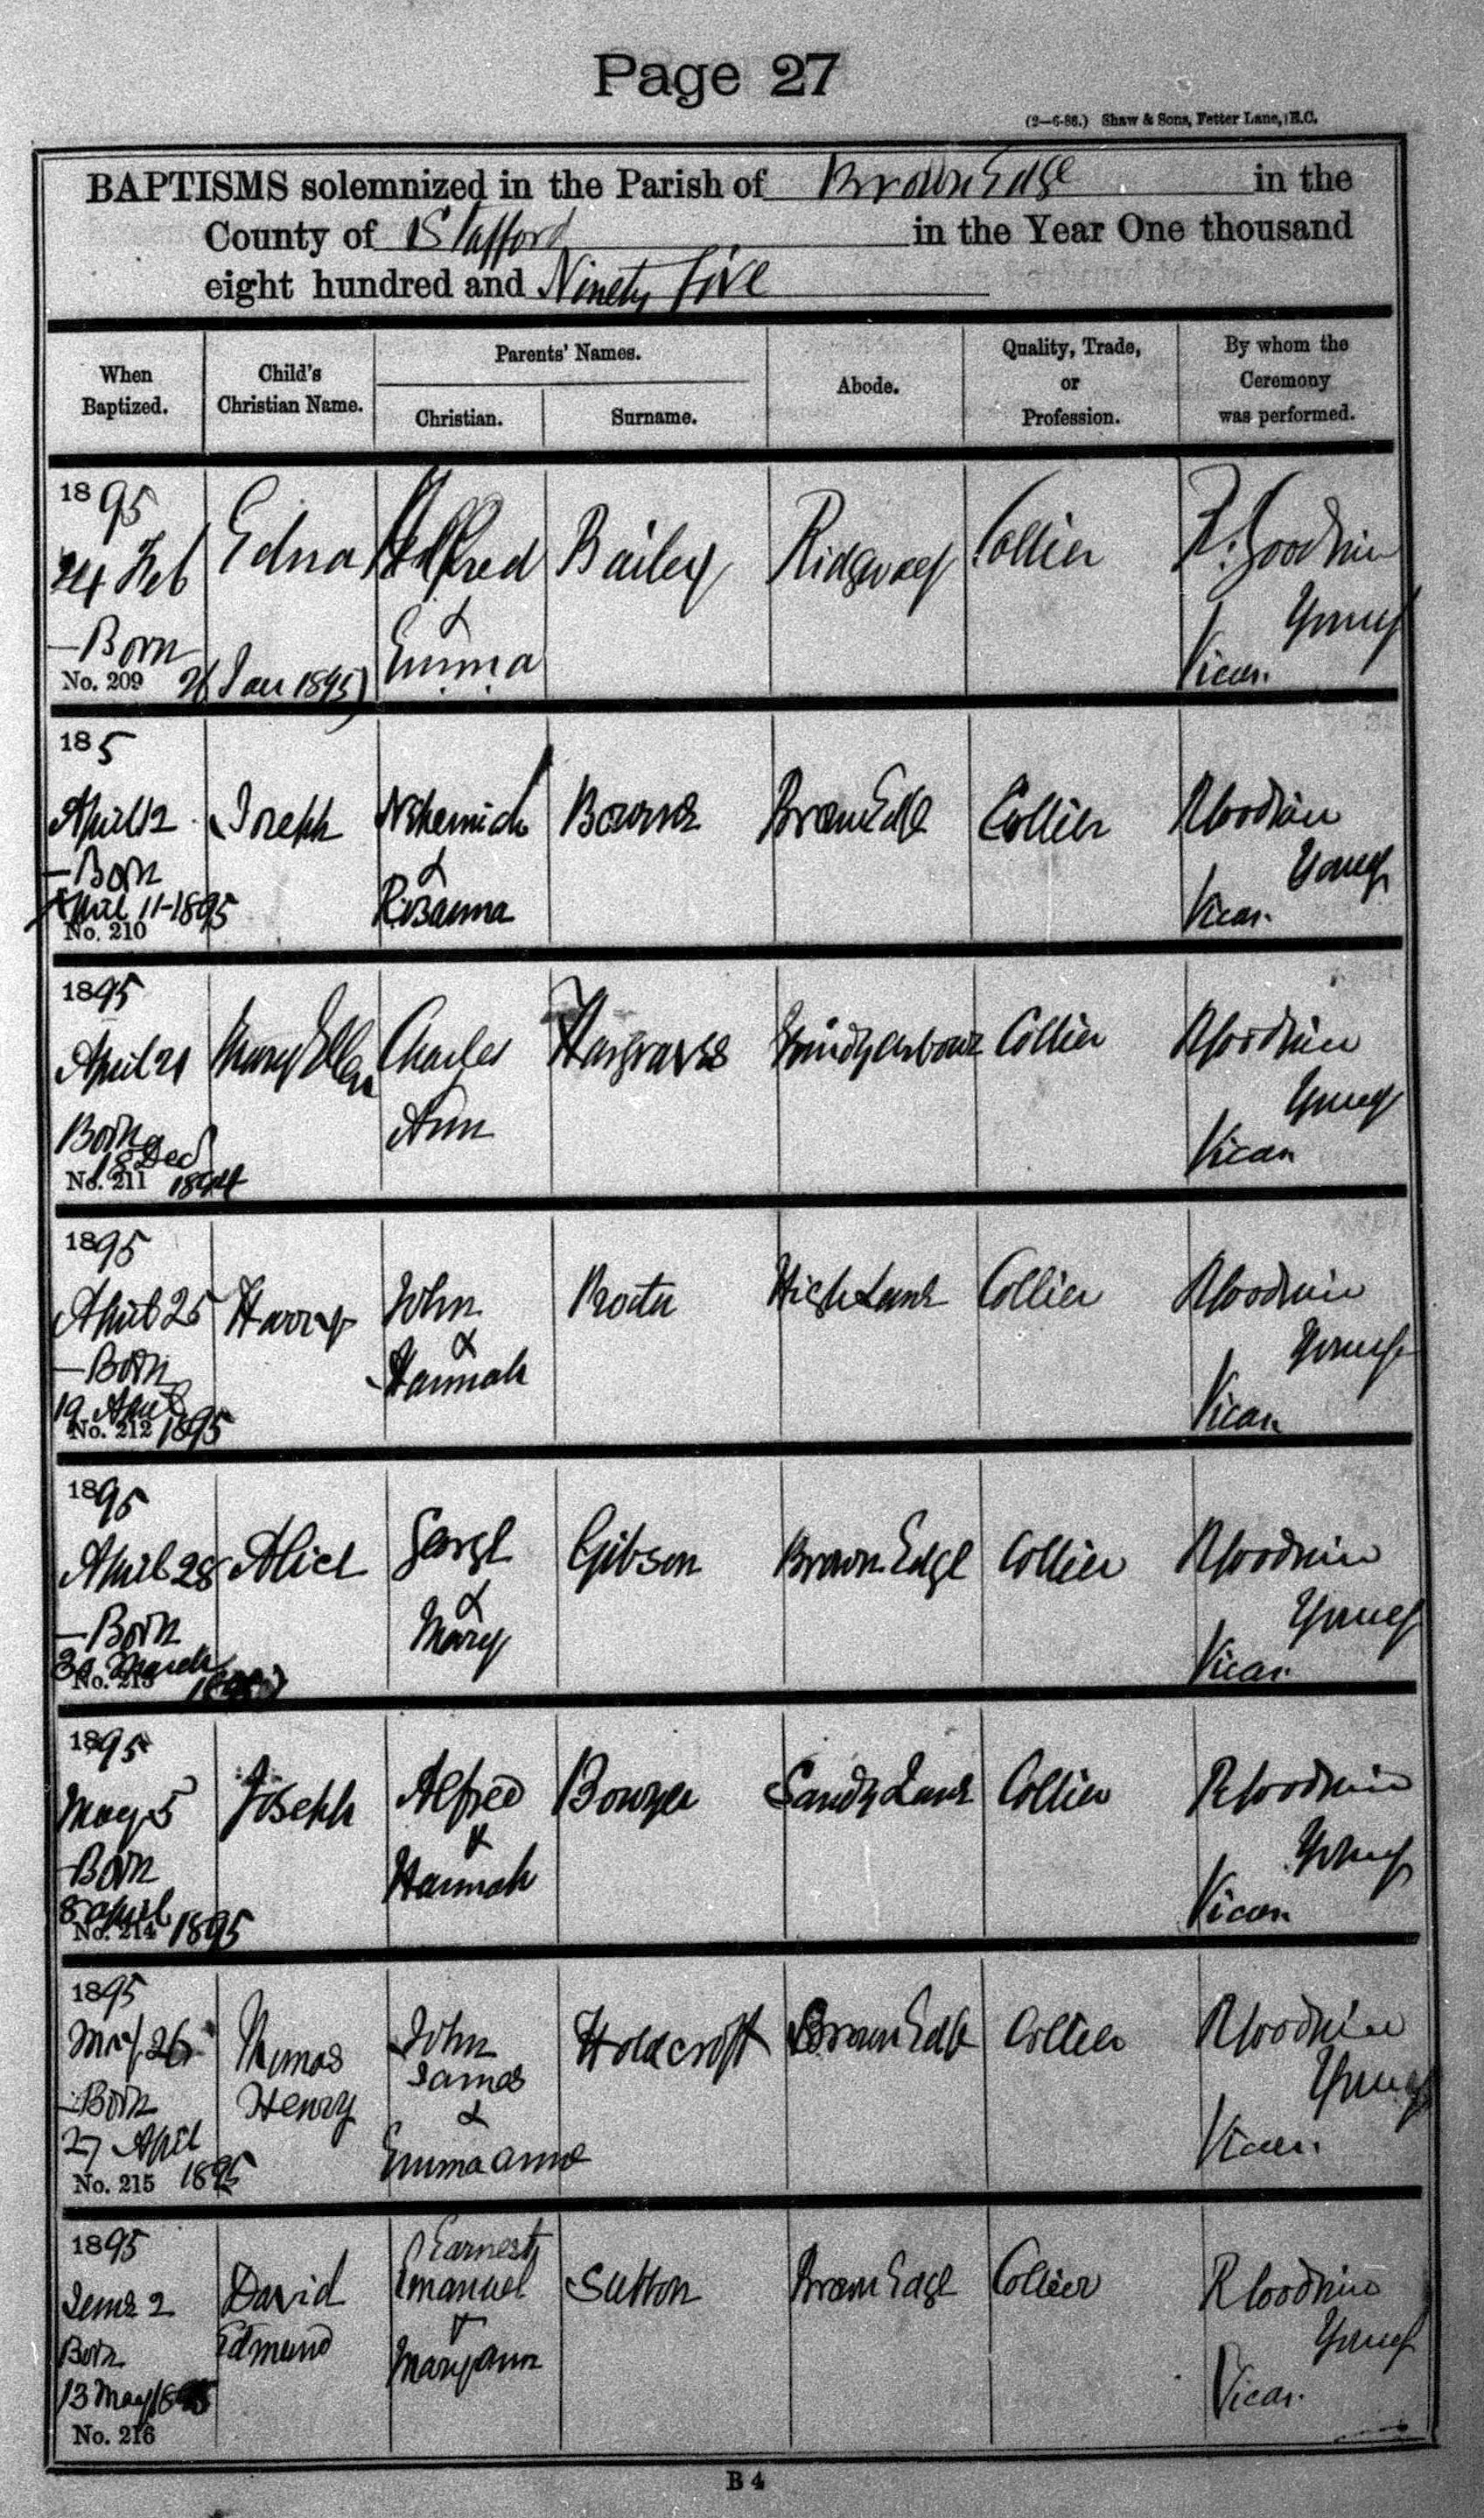 Page 27
(2—6-86.) Shaw & Sons, Fetter Lane, E.C.
BAPTISMS solemnized in the Parish of Brown Edge in the
County of Stafford in the Year One thousand
eight hundred and Ninety five
When Baptized.
Child's Christian Name.
Parents' Names.
Christian.
Surname.
Abode.
Quality, Trade, or Profession.
By whom the Ceremony was performed.
1895
24 Feb
Edna
Alfred
&
Emma
Bailey
Ridgway
Collier
R. Goodwin
Young
Vicar.
—Born
No. 209
Jan 1895)
18 5
April 12
Joseph
Nehemiah
&
Rosanna
Bourne
Brown Edge
Collier
R Goodwin
Young
Vicar.
—Born
April 11-1895
No. 210
1895
April 21
Mary Ellen
Charles
Ann
Hargraves
Collier
R Goodwin
Young
Vicar
Born
18 Dec
No. 211 1894
1895
April 25
Harry
John
&
Hannah
Procter
High Lane
Collier
R Goodwin
Young
Vicar
—Born
19 April
No. 212 1895
1895
April 28
Alice
George
&
Mary
Gibson
Brown Edge
Collier
R Goodwin
Young
Vicar.
—Born
March
No. 213
1895
May 5
Joseph
Alfred
&
Hannah
Bowyer
Sandy Lane
Collier
R Goodwin
Young
Vicar.
—Born
8 April
No. 214 1895
1895
May 26
Thomas
Henry
John
James
&
Emma Anne
Holdcroft
Brown Edge
Collier
R Goodwin
Young
Vicar.
—Born
27 April
No. 215 1895
1895
June 2
David
Edmund
Earnest
Emanuel
&
Mary Ann
Sutton
Brown Edge
Collier
R Goodwin
Young
Vicar.
Born
13 May 1895
No. 216
B 4